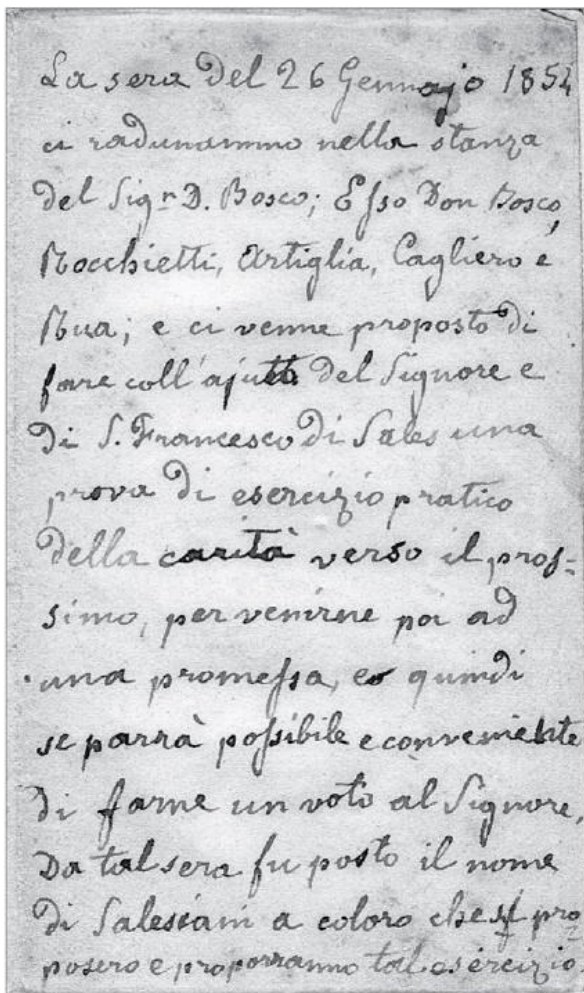 La sera del 26 Gennajo 1854
ci radunammo nella stanza
del Sigr D. Bosco; Esso Don Bosco,
Rocchietti, Artiglia, Cagliero e
Rua; e ci venne proposto di
fare coll'ajuto del Signore e
di S. Francesco di Sales una
prova di esercizio pratico
della carità verso il pros=
simo, per venirne poi ad
una promessa, e quindi
se parrà possibile e conveniente
di farne un voto al Signore.
Da tal sera fu posto il nome
di Salesiani a coloro che si pro
posero e proporranno tal esercizio